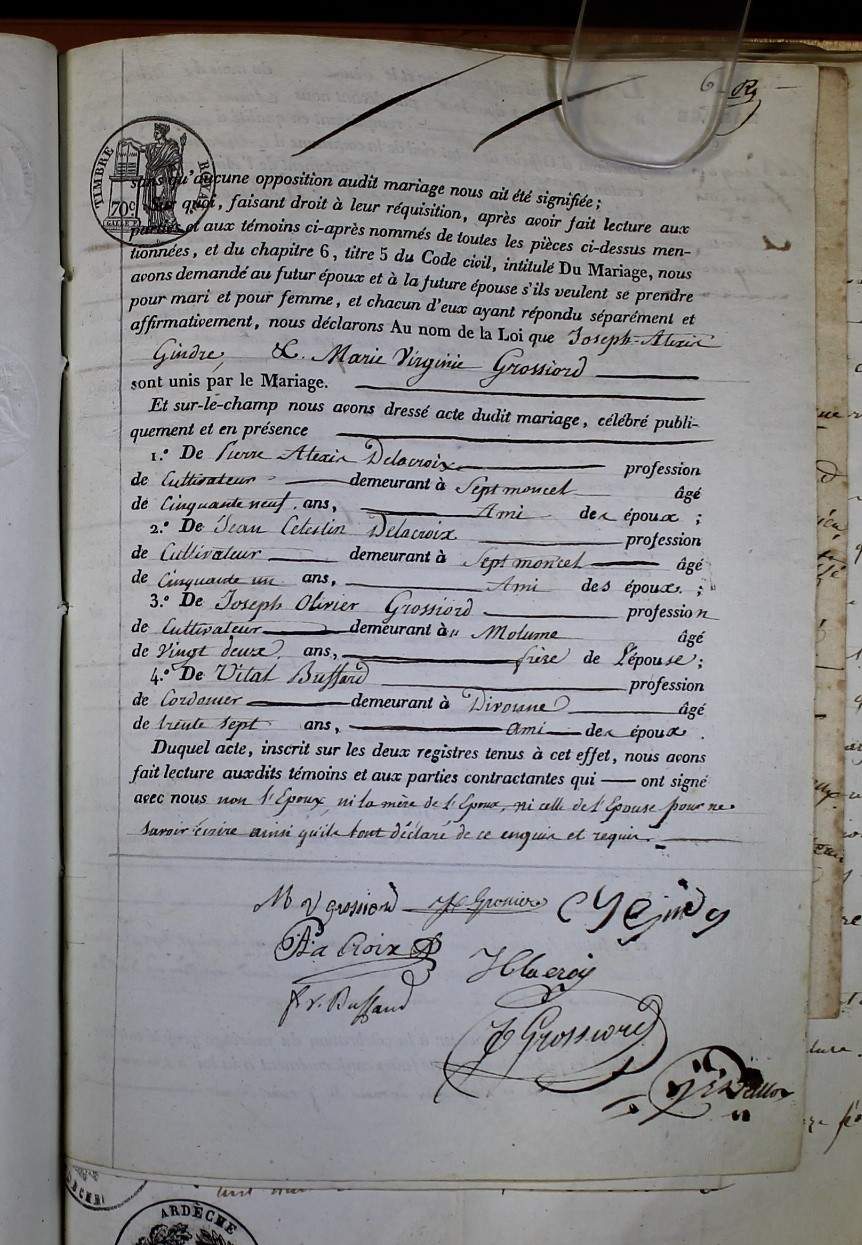 6
TIMBRE ROYAL
70c
sans qu'aucune opposition audit mariage nous ait été signifiée ;
Sur quoi, faisant droit à leur réquisition, après avoir fait lecture aux
parties et aux témoins ci-après nommés de toutes les pièces ci-dessus men-
tionnées, et du chapitre 6, titre 5 du Code civil, intitulé Du Mariage, nous
avons demandé au futur époux et à la future épouse s'ils veulent se prendre
pour mari et pour femme, et chacun d'eux ayant répondu séparément et
affirmativement, nous déclarons Au nom de la Loi que Joseph-Alexis
Gindre, &. Marie Virginie Grossiord
sont unis par le Mariage.
Et sur-le-champ nous avons dressé acte dudit mariage, célébré publi-
quement et en présence
1.° De Pierre Alexis Delacroix profession
de Cultivateur demeurant à Septmoncel âgé
de Cinquante neuf ans, Ami des époux ;
2.° De Jean Celestin Delacroix profession
de Cultivateur demeurant à Septmoncel âgé
de Cinquante un ans, Ami des époux. ;
3.° De Joseph Olivier Grossiord profession
de Cultivateur demeurant à Molume âgé
de Vingt deux ans, frère de l'épouse ;
4.° De Vital Buffard profession
de Cordonier demeurant à Divonne âgé
de trente sept ans, ami des époux .
Duquel acte, inscrit sur les deux registres tenus à cet effet, nous avons
fait lecture auxdits témoins et aux parties contractantes qui — ont signé
avec nous non l'Epoux, ni la mère de l'Epoux, ni celle de l'Epouse pour ne
savoir écrire ainsi qu'ils l'ont déclaré de ce enquis et requis.
M V grossiord
La Croix
fr. Buffard
Grossiord
ARDÈCHE